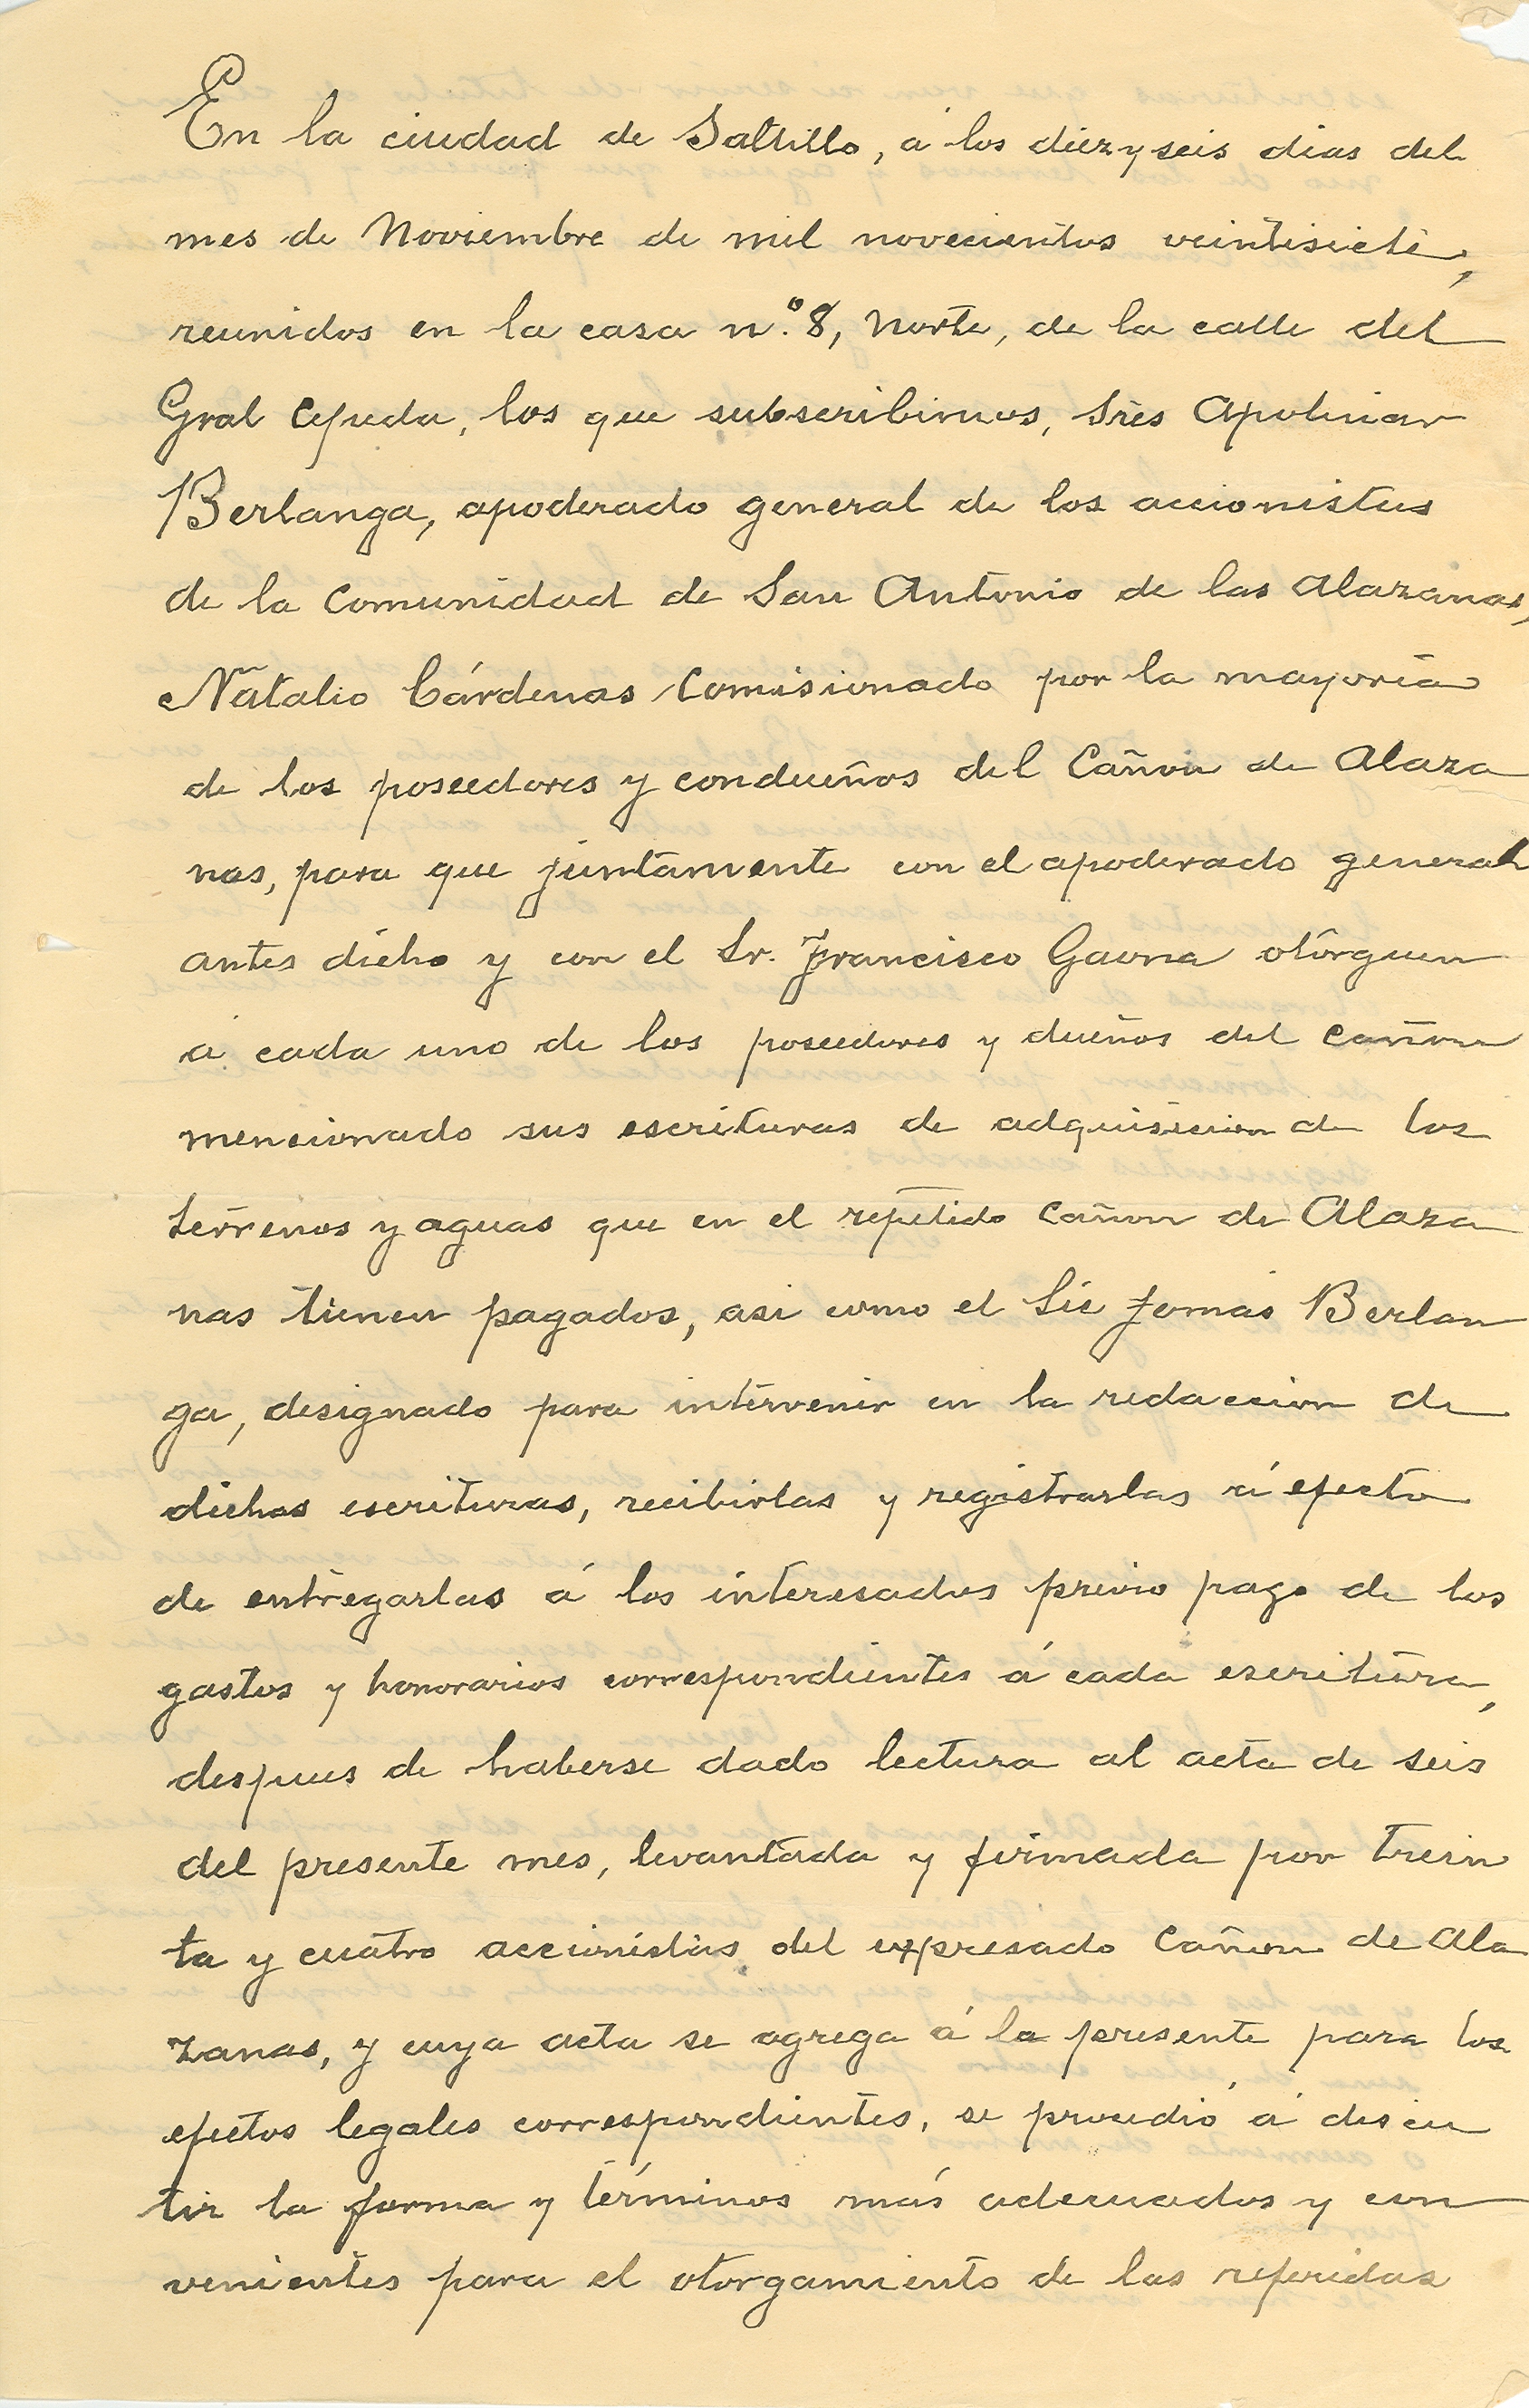 En la ciudad de Saltillo, á los diez y seis dias del
mes de Noviembre de mil novecientos veintisiete,
reunidos en la casa n.º 8, Norte, de la calle del
Gral Cepeda, los que subscribimos, Sres Apolinar
Berlanga, apoderado general de los accionistas
de la Comunidad de San Antonio de las Alazanas,
Natalio Cárdenas comisionado por la mayoria
de los poseedores y condueños del Cañon de Alaza
nas, para que juntamente con el apoderado general
antes dicho y con el Sr. Francisco Gaona otorguen
á cada uno de los poseedores y dueños del cañon
mencionado sus escrituras de adquisicion de los
terrenos y aguas que en el repetido Cañon de Alaza
nas tienen pagados, asi como el Lic Tomás Berlan
ga, designado para intervenir en la redaccion de
dichas escrituras, recibirlas y registrarlas á efecto
de entregarlas á los interesados previo pago de los
gastos y honorarios correspondientes á cada escritura,
despues de haberse dado lectura al acta de seis
del presente mes, levantada y firmada por trein
ta y cuatro accionistas del expresado Cañon de Ala
zanas, y cuya acta se agrega á la presente para los
efectos legales correspondientes, se procedió á discu
tir la forma y términos más adecuados y con
venientes para el otorgamiento de las referidas